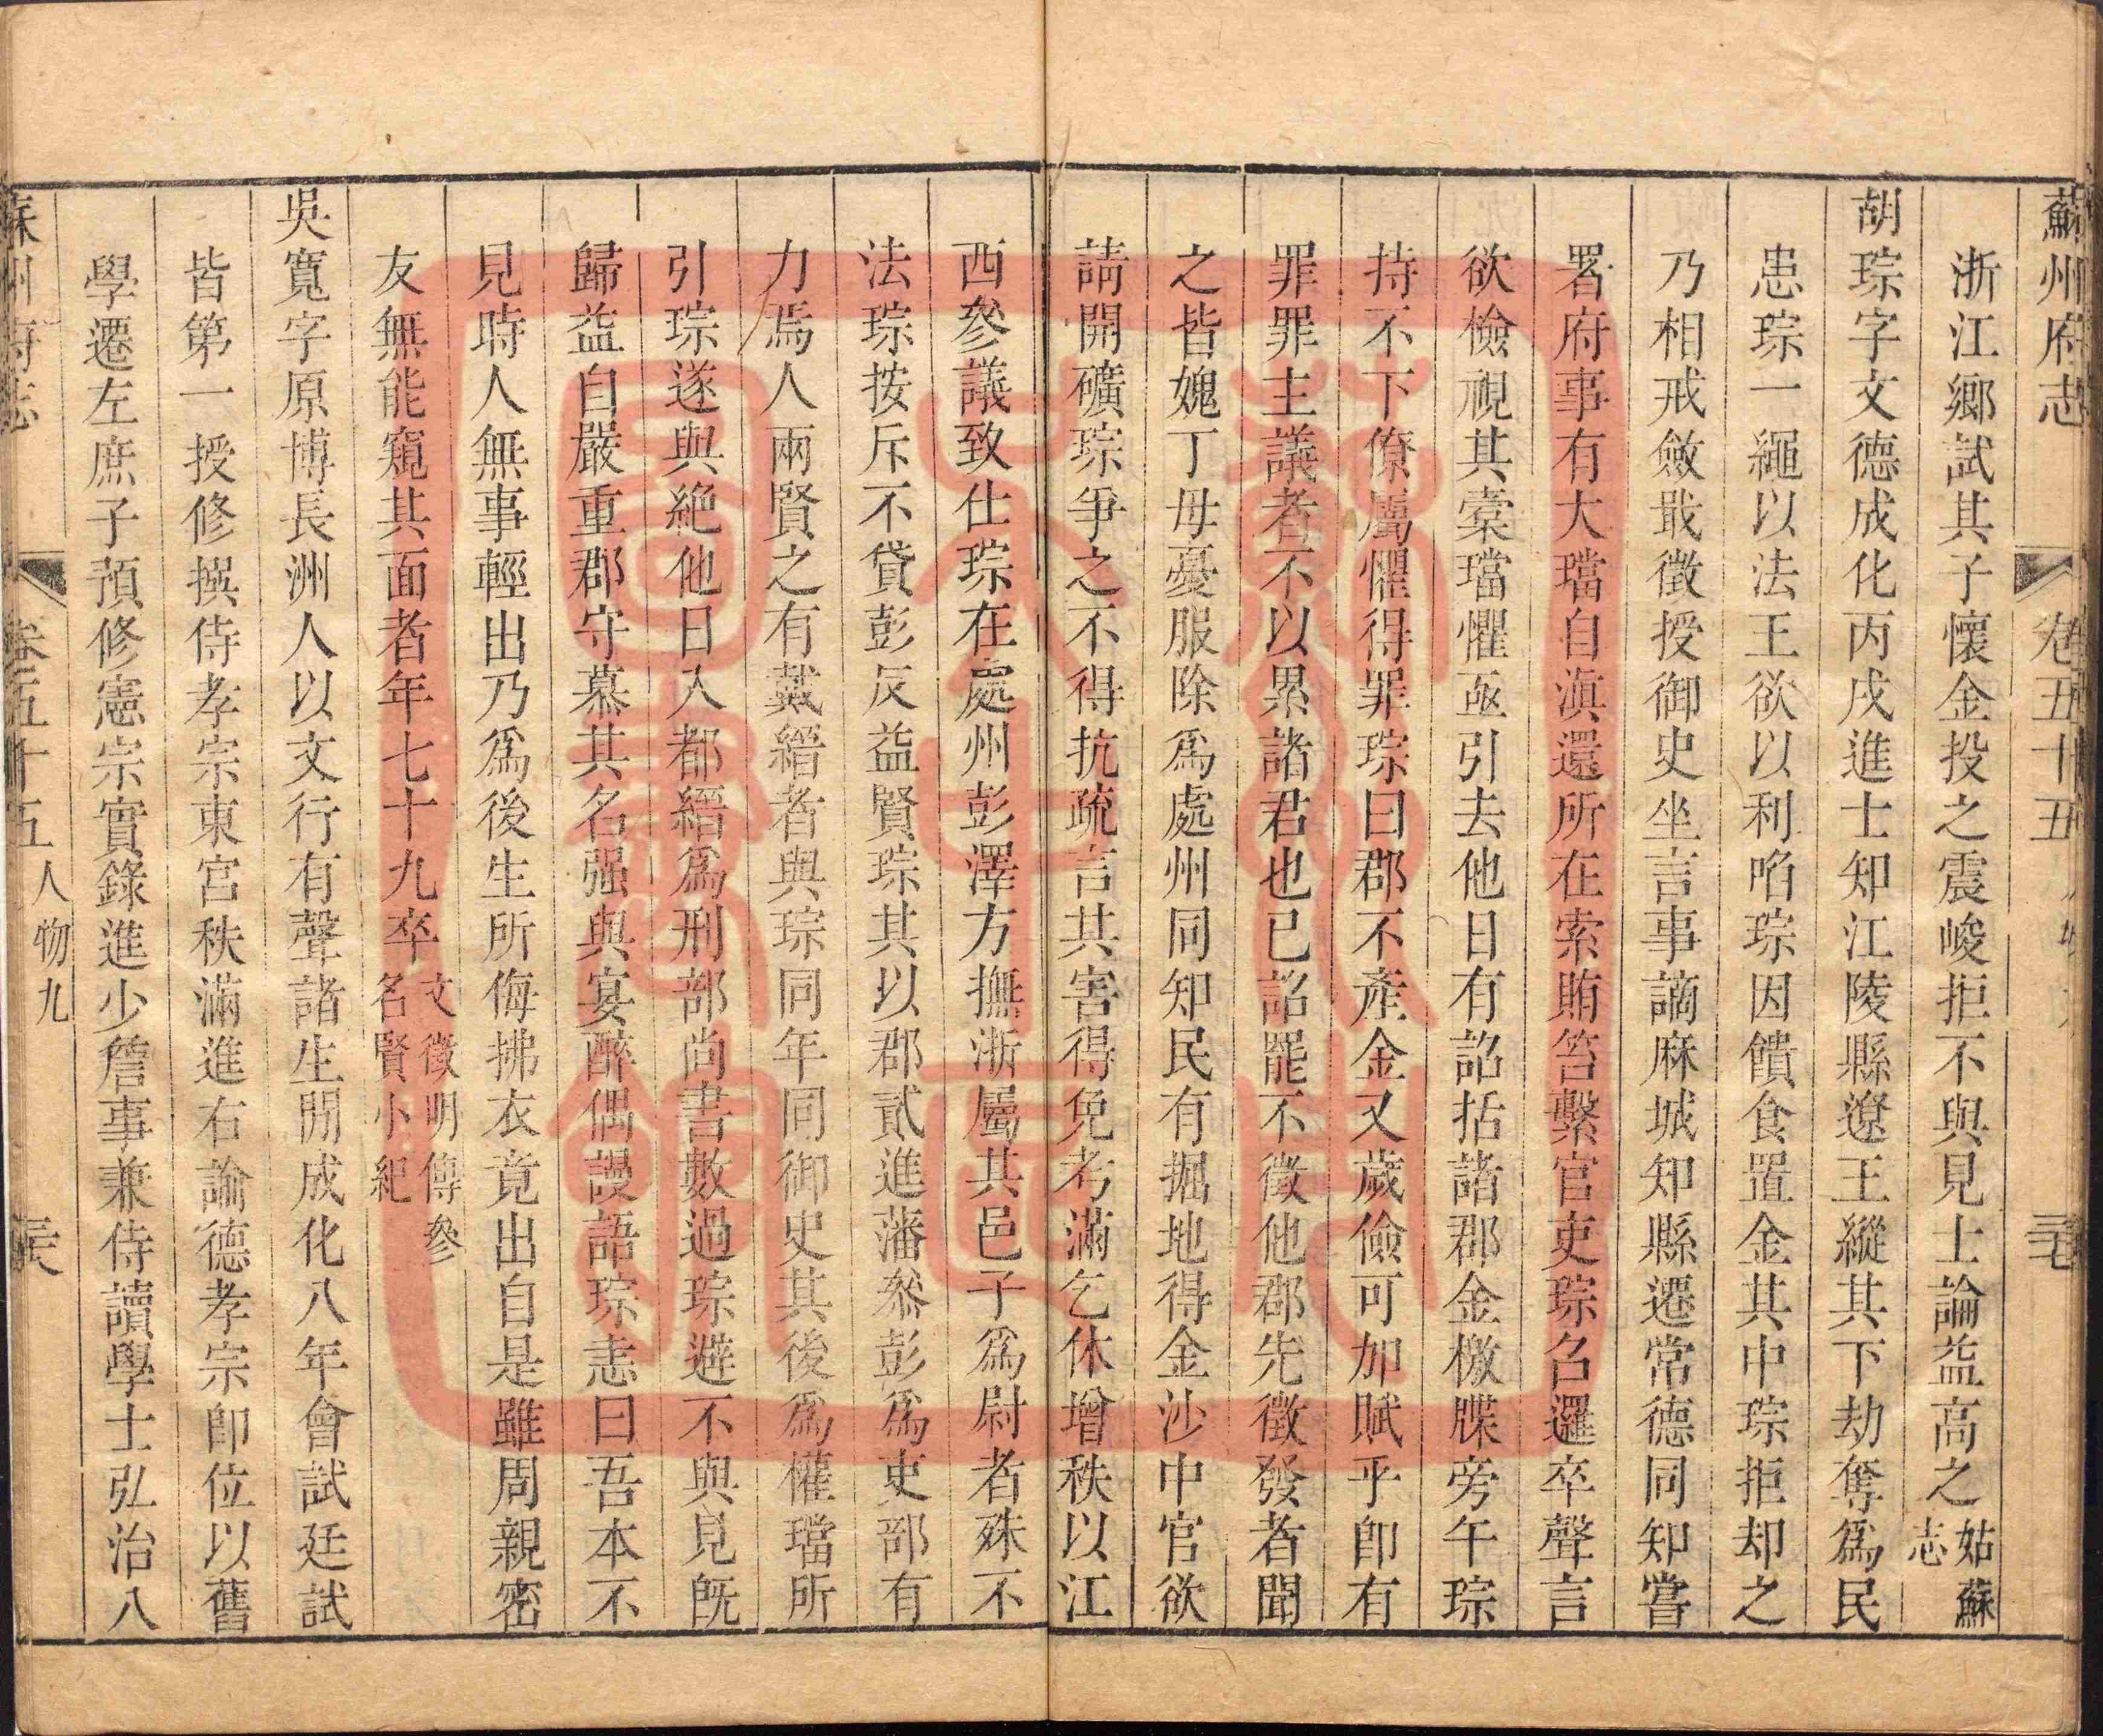 蘇州府志 卷五十五 三七
浙江鄉試其子懷金投之震峻拒不與見士論益高之姑蘇志
胡琮字文德成化丙戌進士知江陵縣遼王縱其下劫奪為民
患琮一繩以法王欲以利啗琮因饋食置金其中琮拒却之
乃相戒斂戢徵授御史坐言事謫麻城知縣遷常德同知嘗
署府事有大璫自滇還所在索賄笞繫官吏琮名邏卒聲言
欲檢視其橐璫懼亟引去他日有詔括諸郡金檄牒旁午琮
持不下僚屬懼得罪琮曰郡不產金又歲儉可加賦乎即有
罪罪主議者不以累諸君也已詔罷不徵他郡先徵發者聞
之皆媿丁母憂服除爲處州同知民有掘地得金沙中官欲
請開礦琮爭之不得抗疏言其害得免考滿乞休增秩以江
西叅議致仕琮在處州彭澤方撫浙屬其邑子爲尉者殊不
法琮按斥不貸彭反益賢琮其以郡貳進藩叅彭爲吏部有
力焉人兩賢之有戴縉者與琮同年同御史其後爲權璫所
引琮遂與絕他日入都縉爲刑部尚書數過琮避不與見旣
歸益自嚴重郡守慕其名强與宴醉偶謾語琮恚曰吾本不
見時人無事輕出乃爲後生所侮拂衣竟出自是雖周親密
友無能窺其面者年七十九卒文徵明傳參名賢小紀
吳寬字原博長洲人以文行有聲諸生間成化八年會試廷試
皆第一授修撰侍孝宗東宮秩滿進右諭德孝宗即位以舊
學遷左庶子預修憲宗實錄進少詹事兼侍讀學士弘治八
蘇州府志 卷五十五 人物九 三八